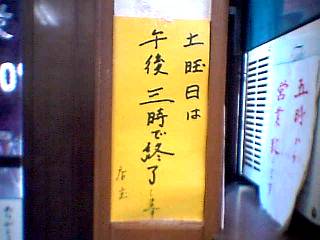 土曜日は
午後三時で終了します
店主
五時から
営業